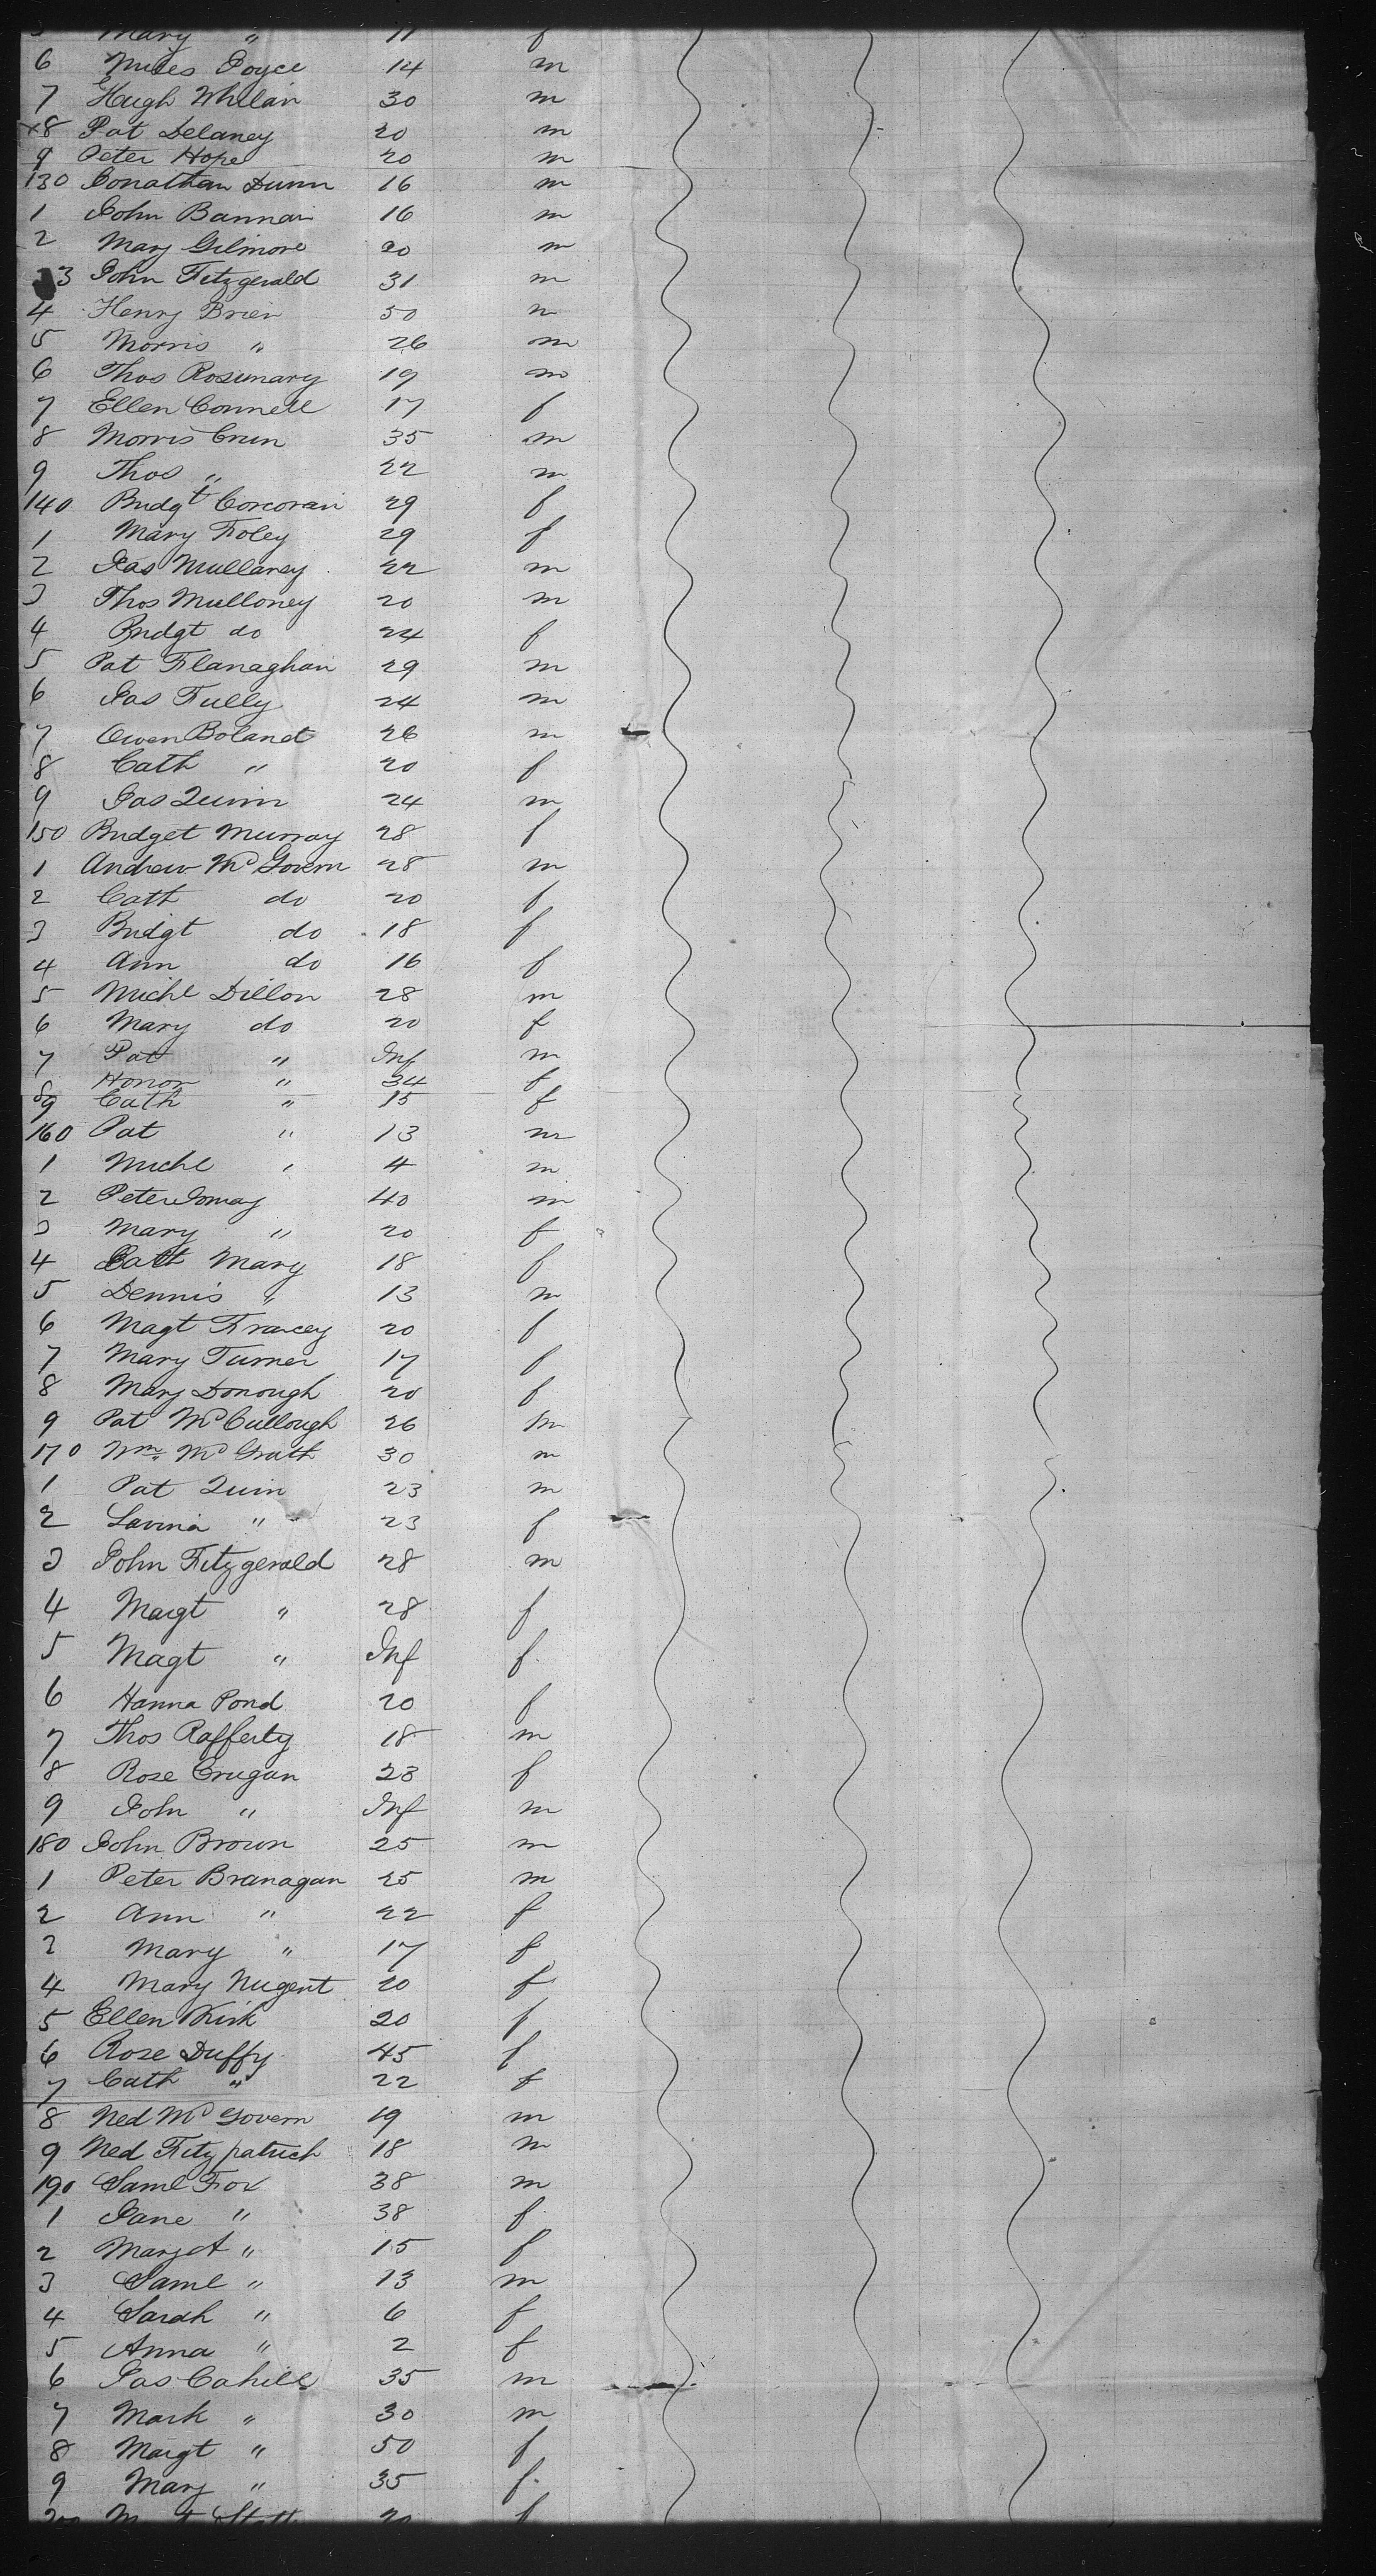 5 Mary " 11 f
6 Miles Joyce 14 m
7 Hugh Whelan 30 m
x8 Pat Delaney 20 m
9 Peter Hope 20 m
130 Jonathan Dunn 16 m
1 John Bannan 16 m
2 Mary Gilmore 20 m
33 John Fitzgerald 31 m
4 Henry Brien 50 m
5 Morris " 26 m
6 Thos Rosemary 19 m
7 Ellen Connell 17 f
8 Morris Crin 35 m
9 Thos " 22 m
140 Bridgt Corcoran 29 f
1 Mary Foley 29 f
2 Jas Mullaney 22 m
3 Thos Mulloney 20 m
4 Bridgt do 24 f
5 Pat Flanaghan 29 m
6 Jas Fully 24 m
7 Owen Boland 26 m
8 Cath " 20 f
9 Jas Quinn 24 m
150 Bridget Murray 28 f
1 Andrew McGovern 28 m
2 Cath do 20 f
3 Bridgt do 18 f
4 Ann do 16 f
5 Michl Dillon 28 m
6 Mary do 20 f
7 Pat " Inf m
8 Honor " 34 f
9 Cath " 15 f
160 Pat " 13 m
1 Michl " 4 m
2 Peter 40 m
3 Mary " 20 f
4 Cath Mary 18 f
5 Dennis " 13 m
6 Magt Francey 20 f
7 Mary Turner 17 f
8 Mary Donough 20 f
9 Pat McCullough 26 m
170 Wm McGrath 30 m
1 Pat Quin 23 m
2 Lavinia " 23 f
3 John Fitzgerald 28 m
4 Margt " 28 f
5 Magt " Inf f
6 Hanna Pond 20 f
7 Thos Rafferty 18 m
8 Rose Crugan 23 f
9 John " Inf m
180 John Brown 25 m
1 Peter Branagan 25 m
2 Ann " 22 f
3 Mary " 17 f
4 Mary Nugent 20 f
5 Ellen Kirk 20 f
6 Rose Duffy 45 f
7 Cath " 22 f
8 Ned McGovern 19 m
9 Ned Fitzpatrick 18 m
190 Saml Fox 38 m
1 Jane " 38 f
2 Mary A " 15 f
3 Saml " 13 m
4 Sarah " 6 f
5 Anna " 2 f
6 Jas Cahill 35 m
7 Mark " 30 m
8 Margt " 50 f
9 Mary " 35 f
200 20 f